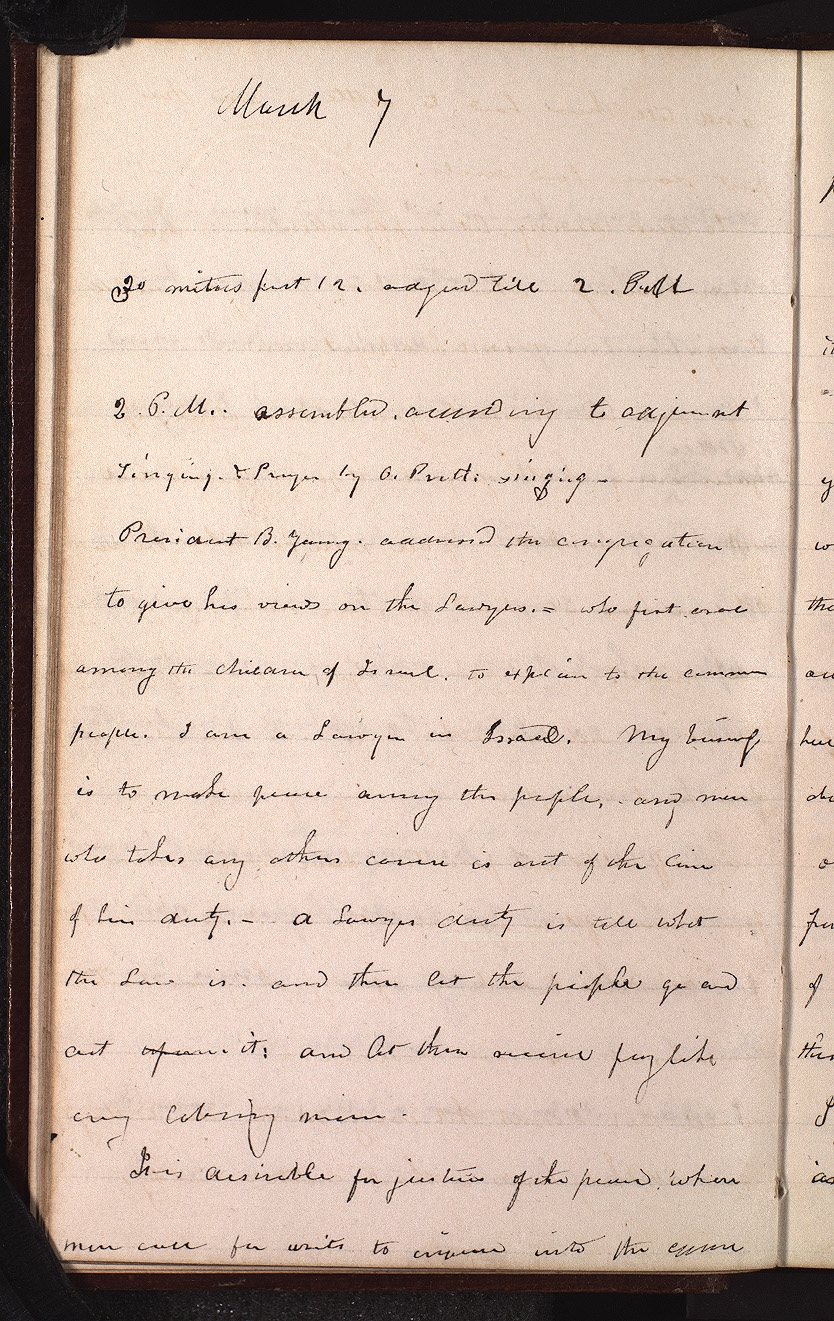 March 7
20 mitues past 12. adjod till 2. P.M
2. P.M. assembled. according to adjurnmt
Singing. & Prayer by O. Pratt: singing -
President B. Young. addressd the congregation
to give his views on the Lawyers. = who first arose
among the children of Israel. to explain to the common
people. I am a Lawyer in Israel. My business
is to make peace among the people, any man
who takes any other course is out of the line
of his duty. - a Lawyers duty is tell what
the Law is. and then let the people go and
act upon it: and let them receive pay like
any laboring man.
It is desirable for justices of the peace. where
men call for writs to inquire into the case